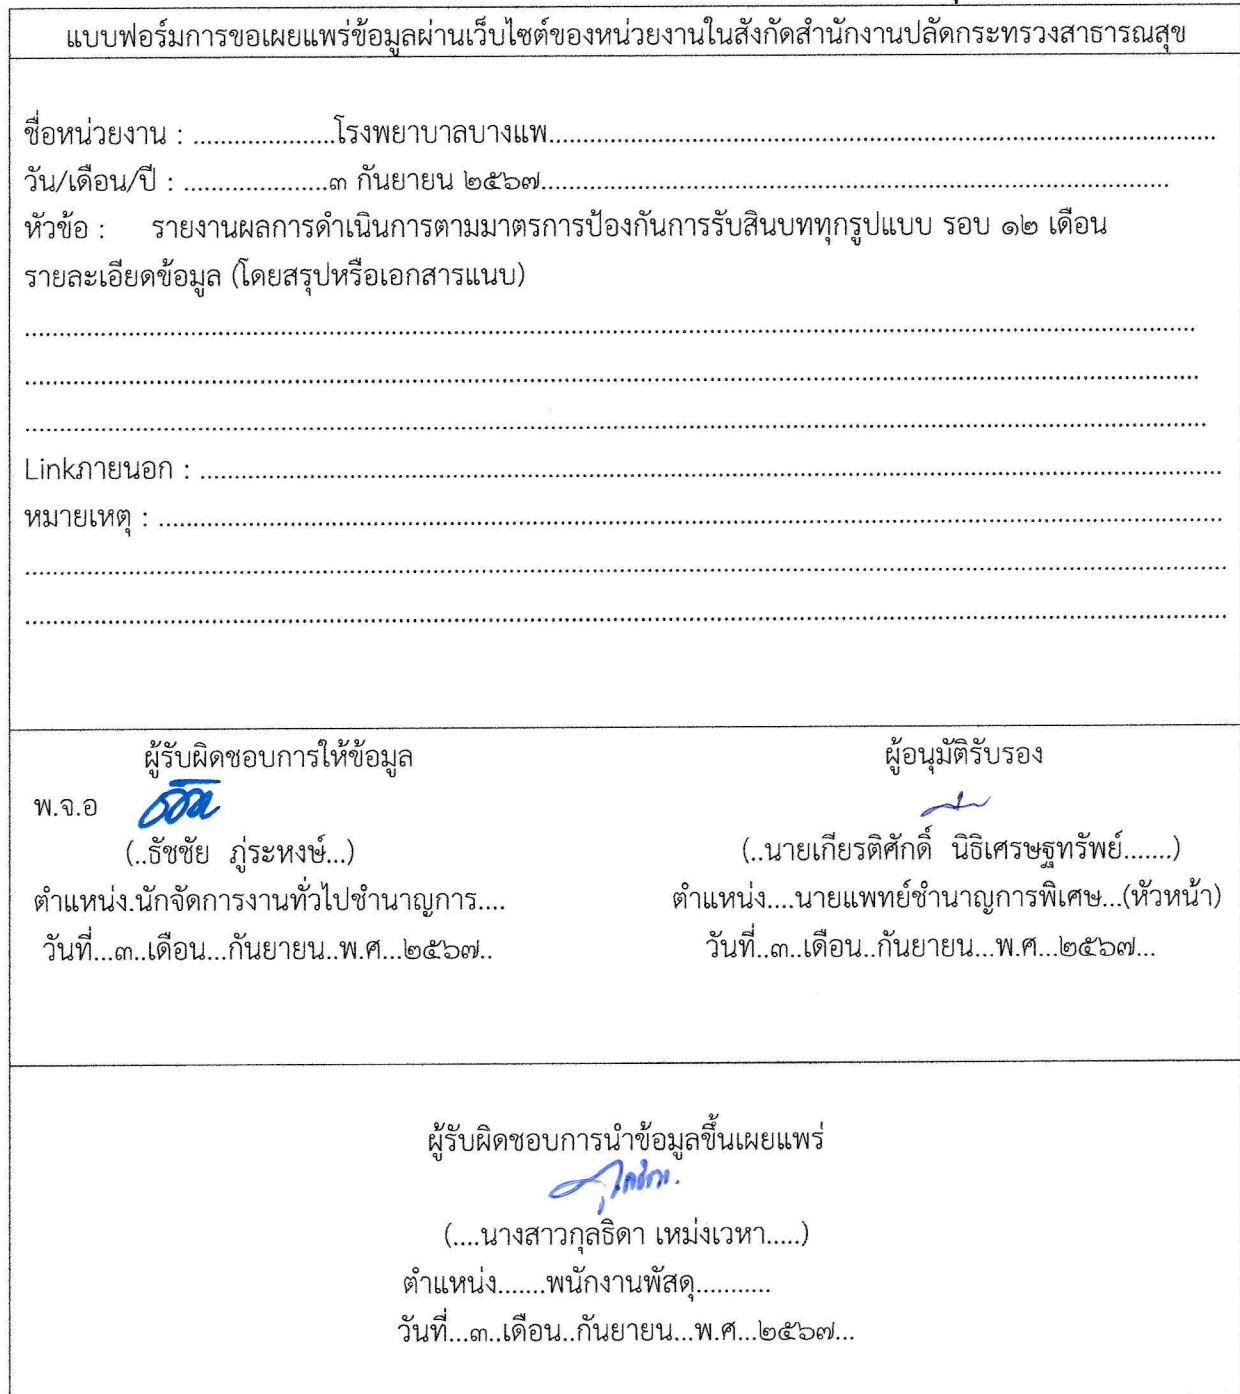 แบบฟอร์มการขอเผยแพร่ข้อมูลผ่านเว็บไซต์ของหน่วยงานในสังกัดสำนักงานปลัดกระทรวงสาธารณสุข
ชื่อหน่วยงาน : .....................โรงพยาบาลบางแพ....................................................................................................
วัน/เดือน/ปี : .....................๓ กันยายน ๒๕๖๗..............................................................................................
หัวข้อ : รายงานผลการดำเนินการตามมาตรการป้องกันการรับสินบททุกรูปแบบ รอบ ๑๒ เดือน
รายละเอียดข้อมูล (โดยสรุปหรือเอกสารแนบ)
................................................................................................................................................................
................................................................................................................................................................
................................................................................................................................................................
Linkภายนอก : ..........................................................................................................................................
หมายเหตุ : ................................................................................................................................................
................................................................................................................................................................
................................................................................................................................................................
ผู้รับผิดชอบการให้ข้อมูล
พ.จ.อ
(..ธัชชัย ภู่ระหงษ์...)
ตำแหน่ง.นักจัดการงานทั่วไปชำนาญการ....
วันที่...๓..เดือน...กันยายน..พ.ศ...๒๕๖๗..
ผู้อนุมัติรับรอง
(..นายเกียรติศักดิ์ นิธิเศรษฐทรัพย์.......)
ตำแหน่ง....นายแพทย์ชำนาญการพิเศษ...(หัวหน้า)
วันที่..๓..เดือน..กันยายน...พ.ศ...๒๕๖๗...
ผู้รับผิดชอบการนำข้อมูลขึ้นเผยแพร่
(....นางสาวกุลธิดา เหม่งเวหา.....)
ตำแหน่ง.......พนักงานพัสดุ...........
วันที่...๓..เดือน..กันยายน...พ.ศ...๒๕๖๗...